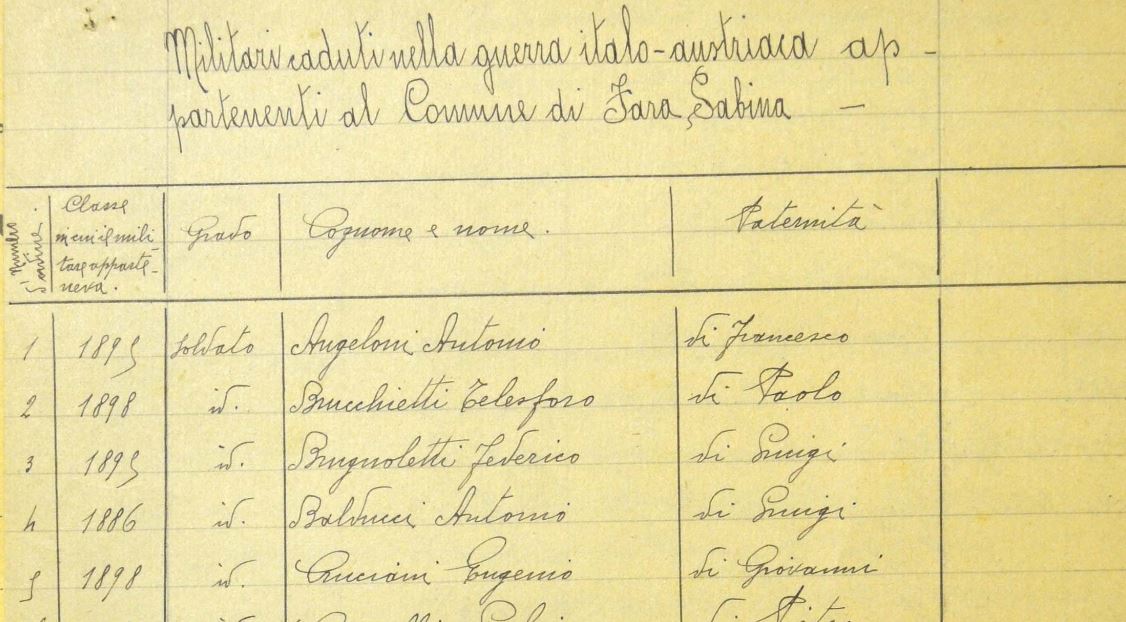 Militari caduti nella guerra italo-austriaca ap-
partenenti al Comune di Fara Sabina —
Numero d'ordine.
Classe
in cui il mili-
tare apparte-
neva.
Grado
Cognome e nome.
Paternità
1 1895 soldato Angeloni Antonio di Francesco
2 1898 id. Brucchietti Telesforo di Paolo
3 1895 id. Brugnoletti Federico di Luigi
4 1886 id. Balducci Antonio di Luigi
5 1898 id. Cruciani Eugenio di Giovanni